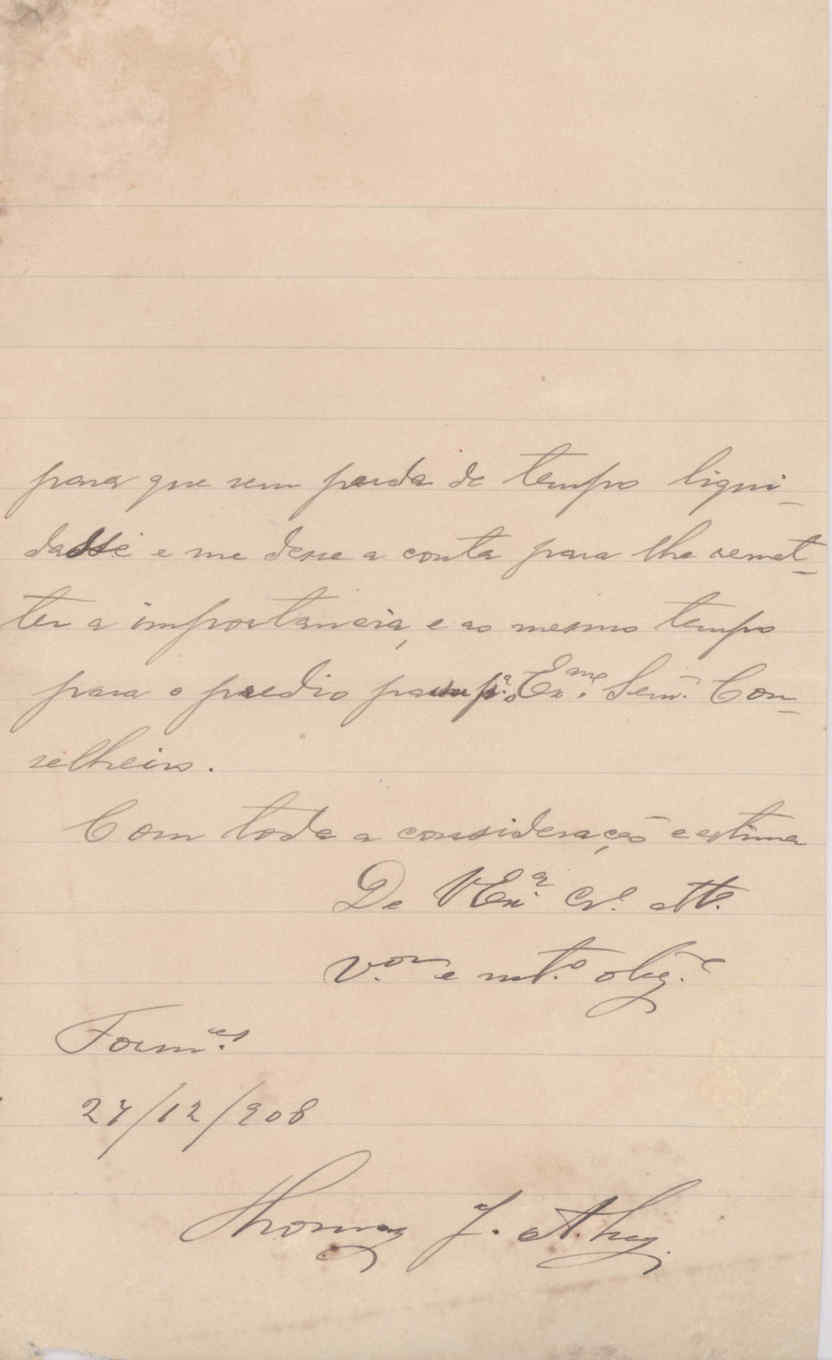 para que sem perda de tempo liqui-
dasse e me desse a conta para lhe remet-
ter a importancia, e ao mesmo tempo
para o predio para Exmo. Senr. Con-
selheiro.
Com toda a consideração e estima
De V Exª. Cr.º Att.
V.or e mt.º obg.
Form.es
27/12/908
Thomaz J.